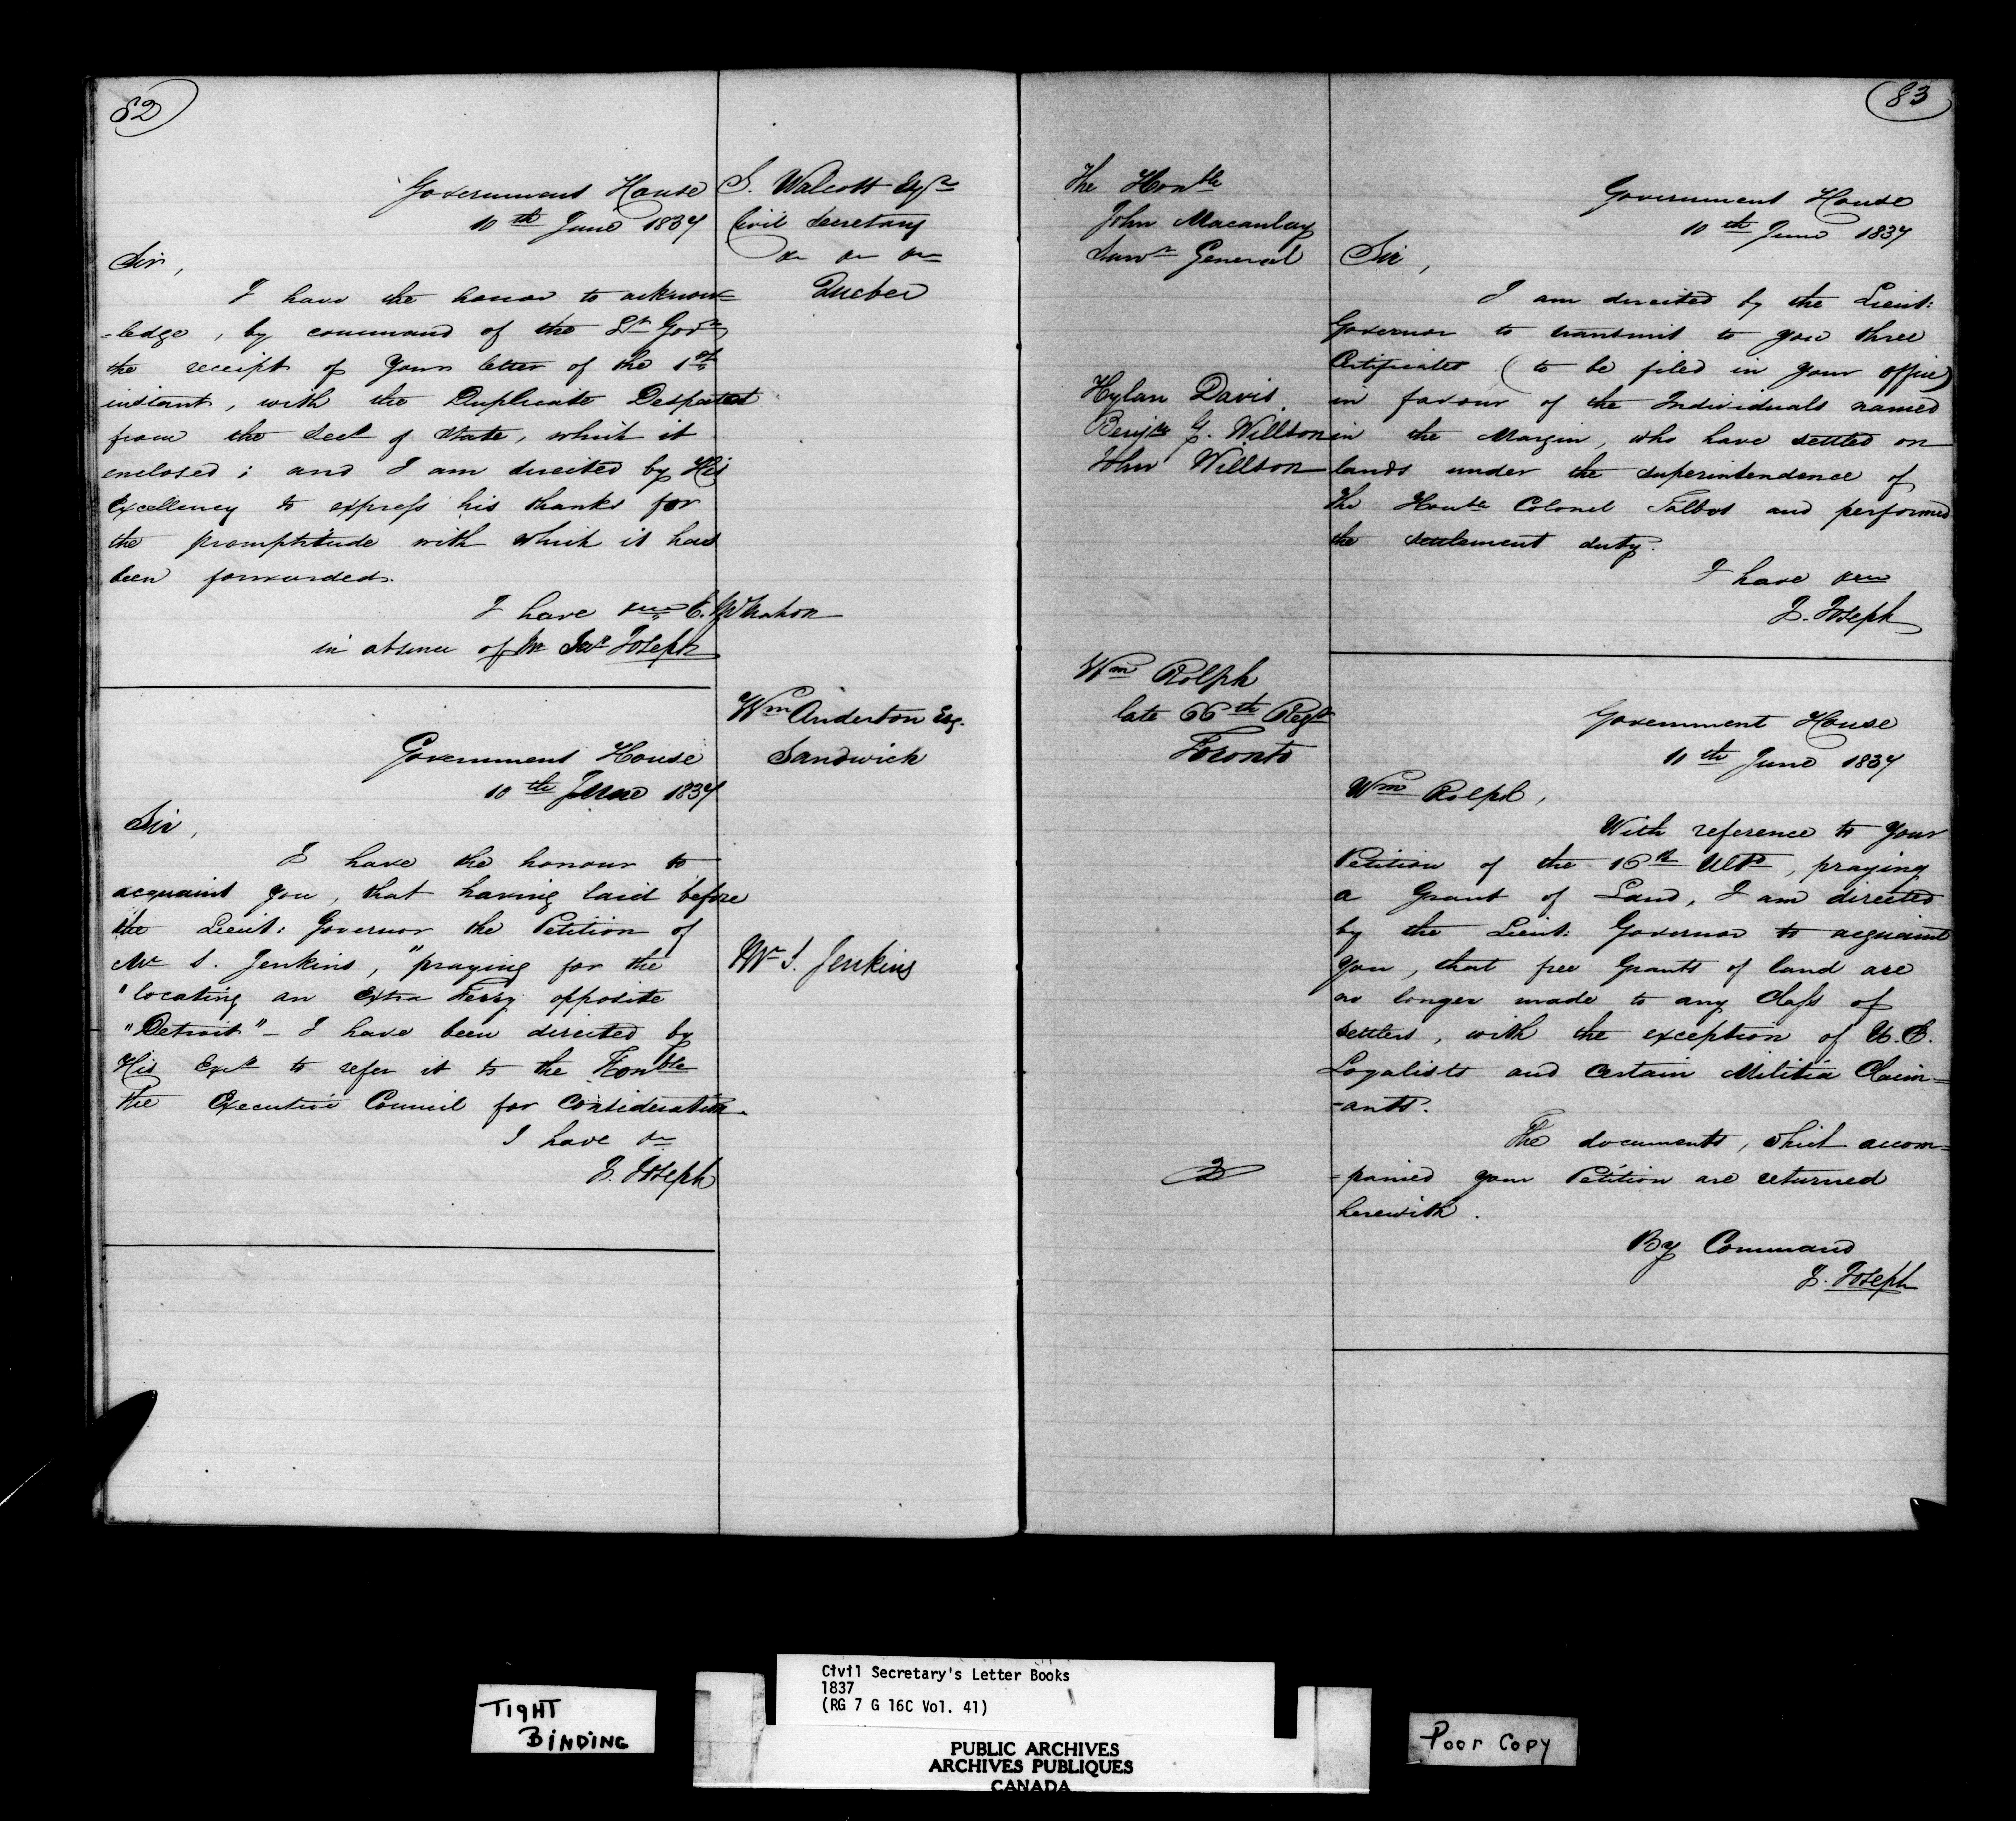 82
Government House
10th June 1837
S. Walcott Esqre
Civil Secretary
&c &c &c
Quebec
Sir,
I have the honor to acknow=
-ledge, by command of the Lt Govr
the receipt of your letter of the 1st
instant, with the Duplicate Despatch
from the Secy of State, which it
enclosed; and I am directed by His
Excellency to express his thanks for
the promptitude with which it has
been forwarded.
I have &c
in absence of Mr Secy Joseph
Wm Anderton Esq.
Sandwich
Government House
10th June 1837
Sir,
I have the honour to
acquaint you, that having laid before
the Lieut: Governor the Petition of
Mr S. Jenkins, "praying for the
"locating an extra Ferry opposite
"Detroit" - I have been directed by
His Excy to refer it to the Honble
the Executive Council for Consideration.
I have &c
J. Joseph
Mr S. Jenkins
83
The Honble
John Macaulay
Survr General
Government House
10th June 1837
Sir,
I am directed by the Lieut:
Governor to transmit to you three
Certificates (to be filed in your office)
in favour of the Individuals named
in the Margin, who have settled on
lands under the superintendence of
the Honble Colonel Talbot and performed
the settlement duty.
I have &c
J. Joseph
Hylan Davis
Benjn G. Willson
John Willson
Wm Rolph
late 66th Regt
Toronto
Government House
10th June 1837
Wm Rolph,
With reference to your
Petition of the 16th Ulto, praying
a Grant of Land, I am directed
by the Lieut: Governor to acquaint
you, that free Grants of land are
no longer made to any Class of
settlers, with the exception of U.E.
Loyalists and Certain Militia Claim=
-ants.
The documents, which accom=
-panied your Petition are returned
herewith.
By Command
J. Joseph
TIGHT
BINDING
Civil Secretary's Letter Books
1837
(RG 7 G 16C Vol. 41)
PUBLIC ARCHIVES
ARCHIVES PUBLIQUES
CANADA
Poor Copy